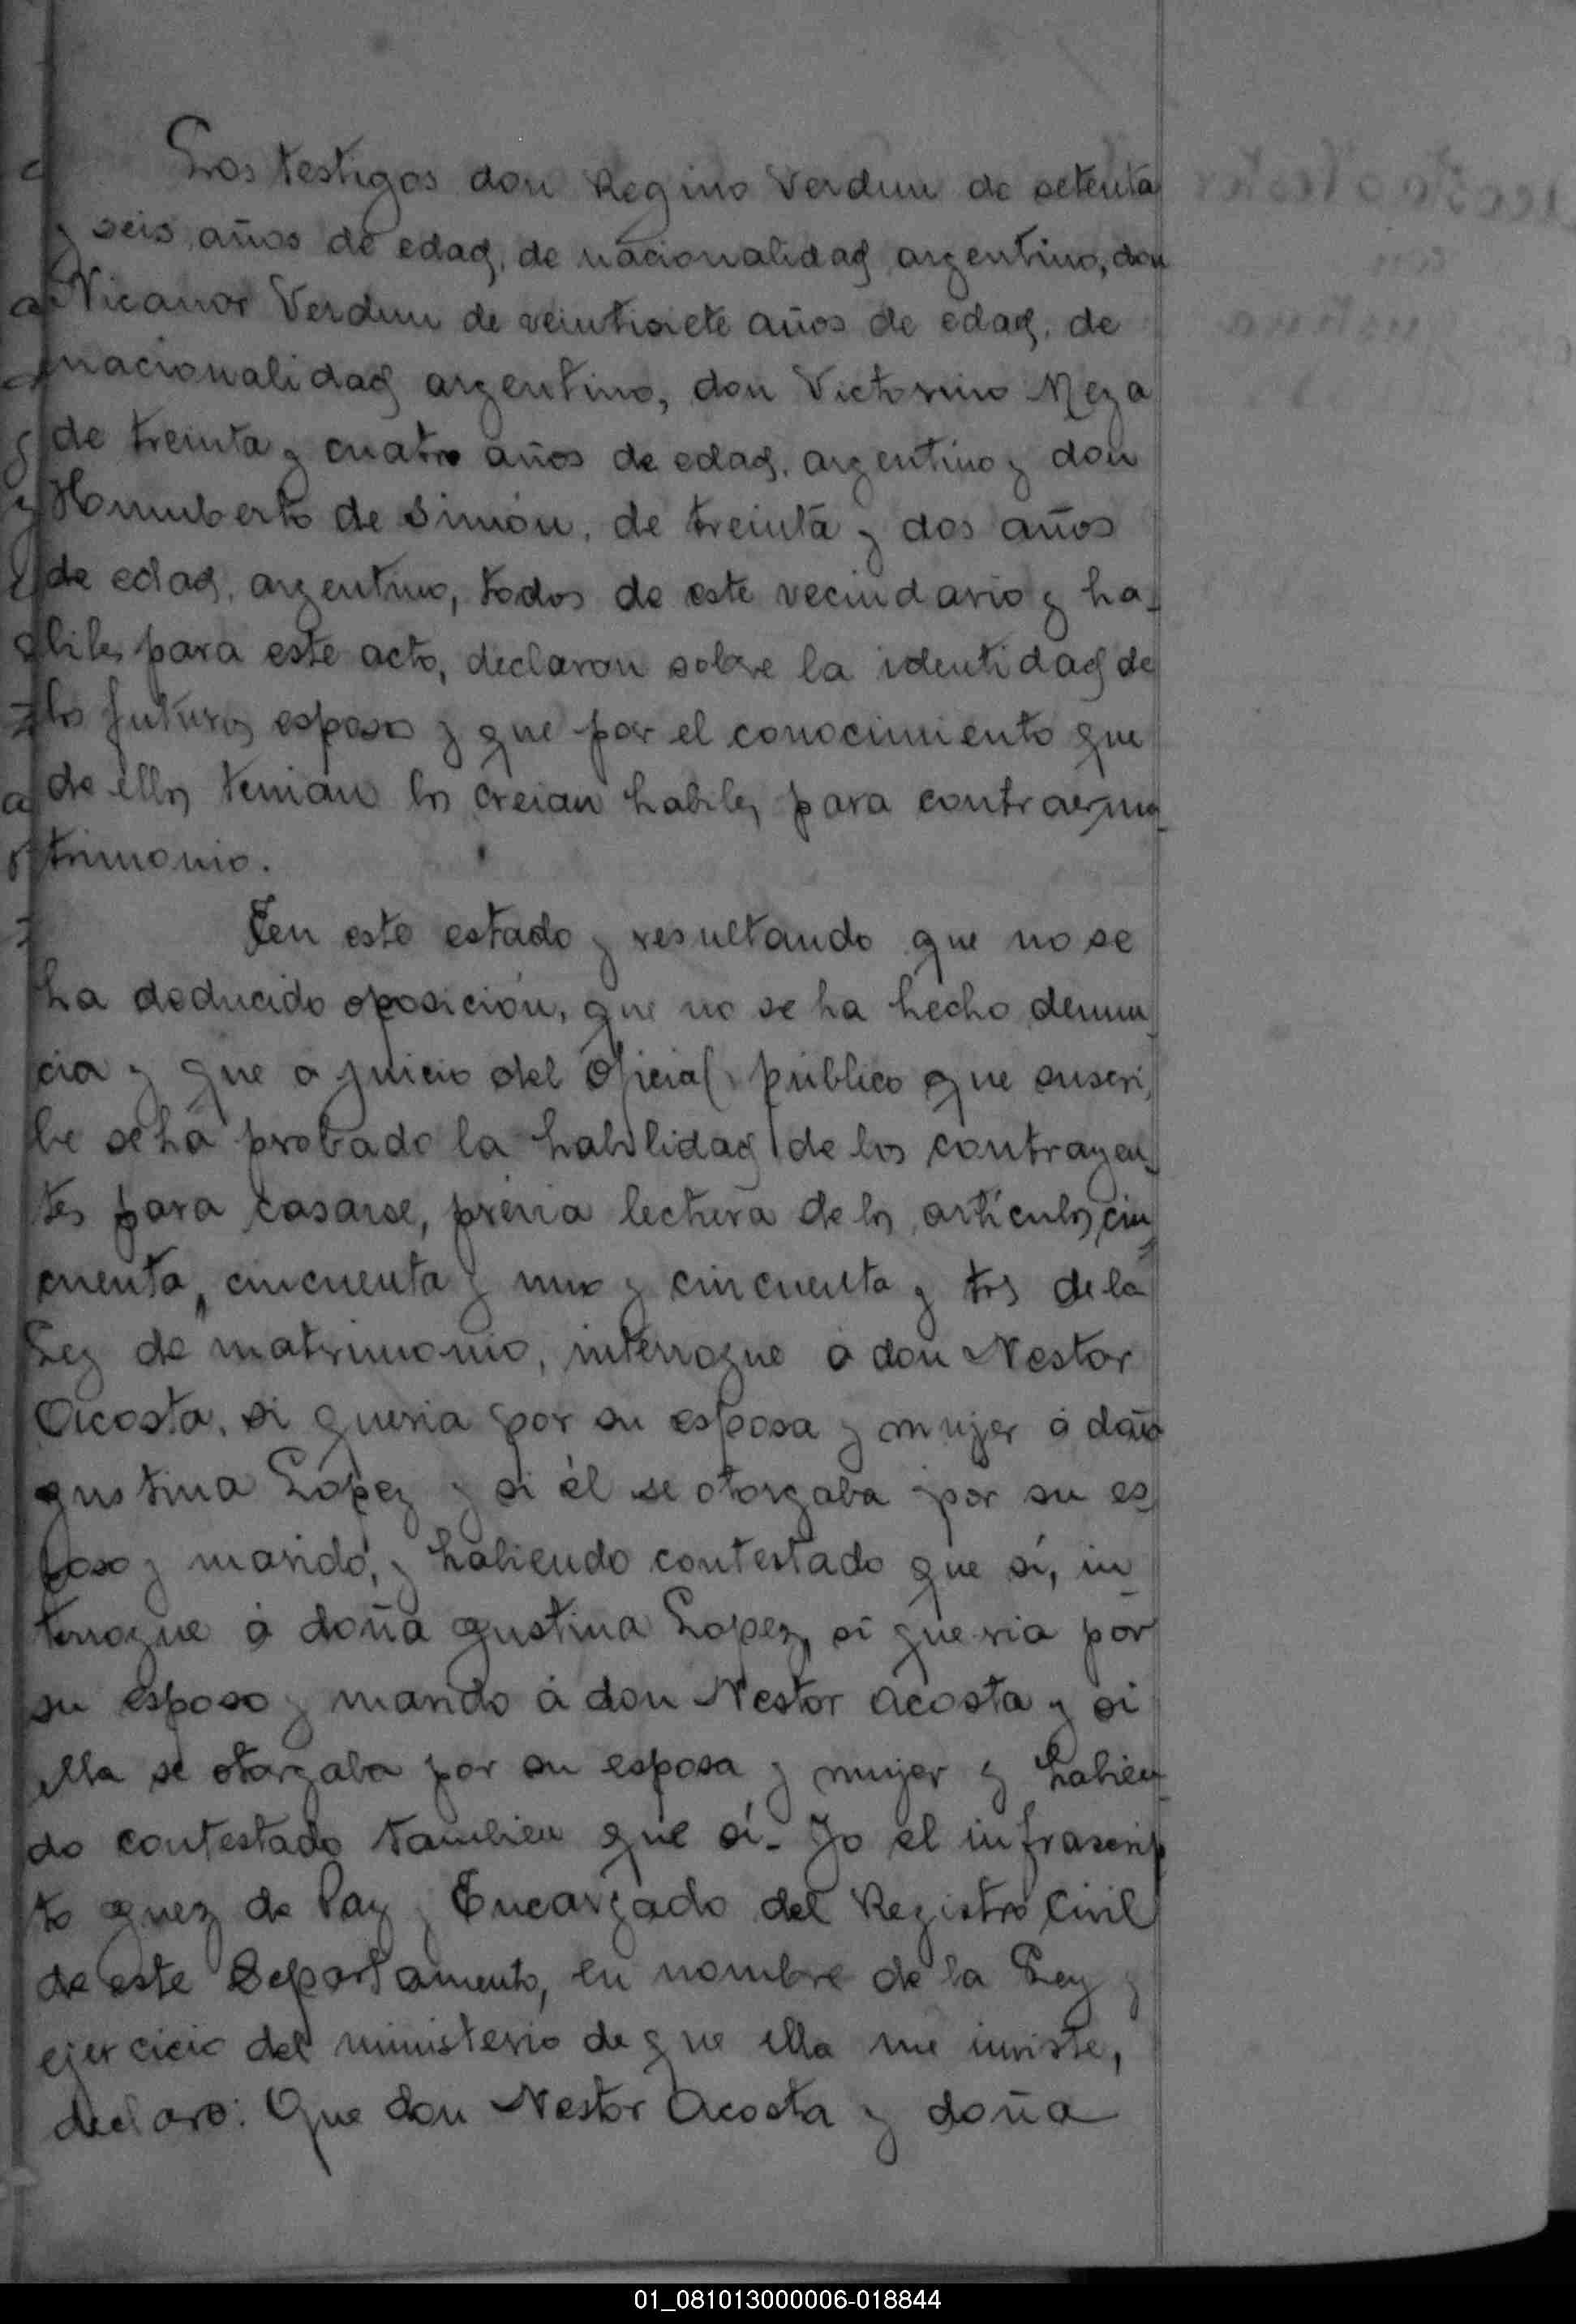 Los testigos don Regino Verdun de setenta
y seis años de edad, de nacionalidad argentino, don
Nicanor Verdun de veintisiete años de edad, de
nacionalidad argentino, don Victorino Meza
de treinta y cuatro años de edad, argentino y don
Humberto de Simón, de treinta y dos años
de edad, argentino, todos de este vecindario y ha-
biles para este acto, declaron sobre la identidad de
los futuros esposos y que por el conocimiento que
de ellos tenian los creian habiles para contraer ma-
trimonio.
En este estado y resultando que no se
ha deducido oposición, que no se ha hecho denun-
cia y que a juicio del Oficial público que suscri-
be se ha probado la habilidad de los contrayen-
tes para casarse, prévia lectura de los artículos cin-
cuenta, cincuenta y uno y cincuenta y tres de la
Ley de matrimonio, interrogue á don Nestor
Acosta, si queria por su esposa y mujer á doña
Justina López y si él se otorgaba por su es-
poso y marido, y habiendo contestado que sí, in-
terrogue á doña Justina Lopez, si queria por
su esposo y marido á don Nestor Acosta y si
ella se otorgaba por su esposa y mujer y habien-
do contestado tambien que sí. Yo el infrascrip-
to Juez de Paz y Encargado del Registro Civil
de este Departamento, en nombre de la Ley y
ejercicio del ministerio de que ella me inviste,
declaro: Que don Nestor Acosta y doña
01_081013000006-018844